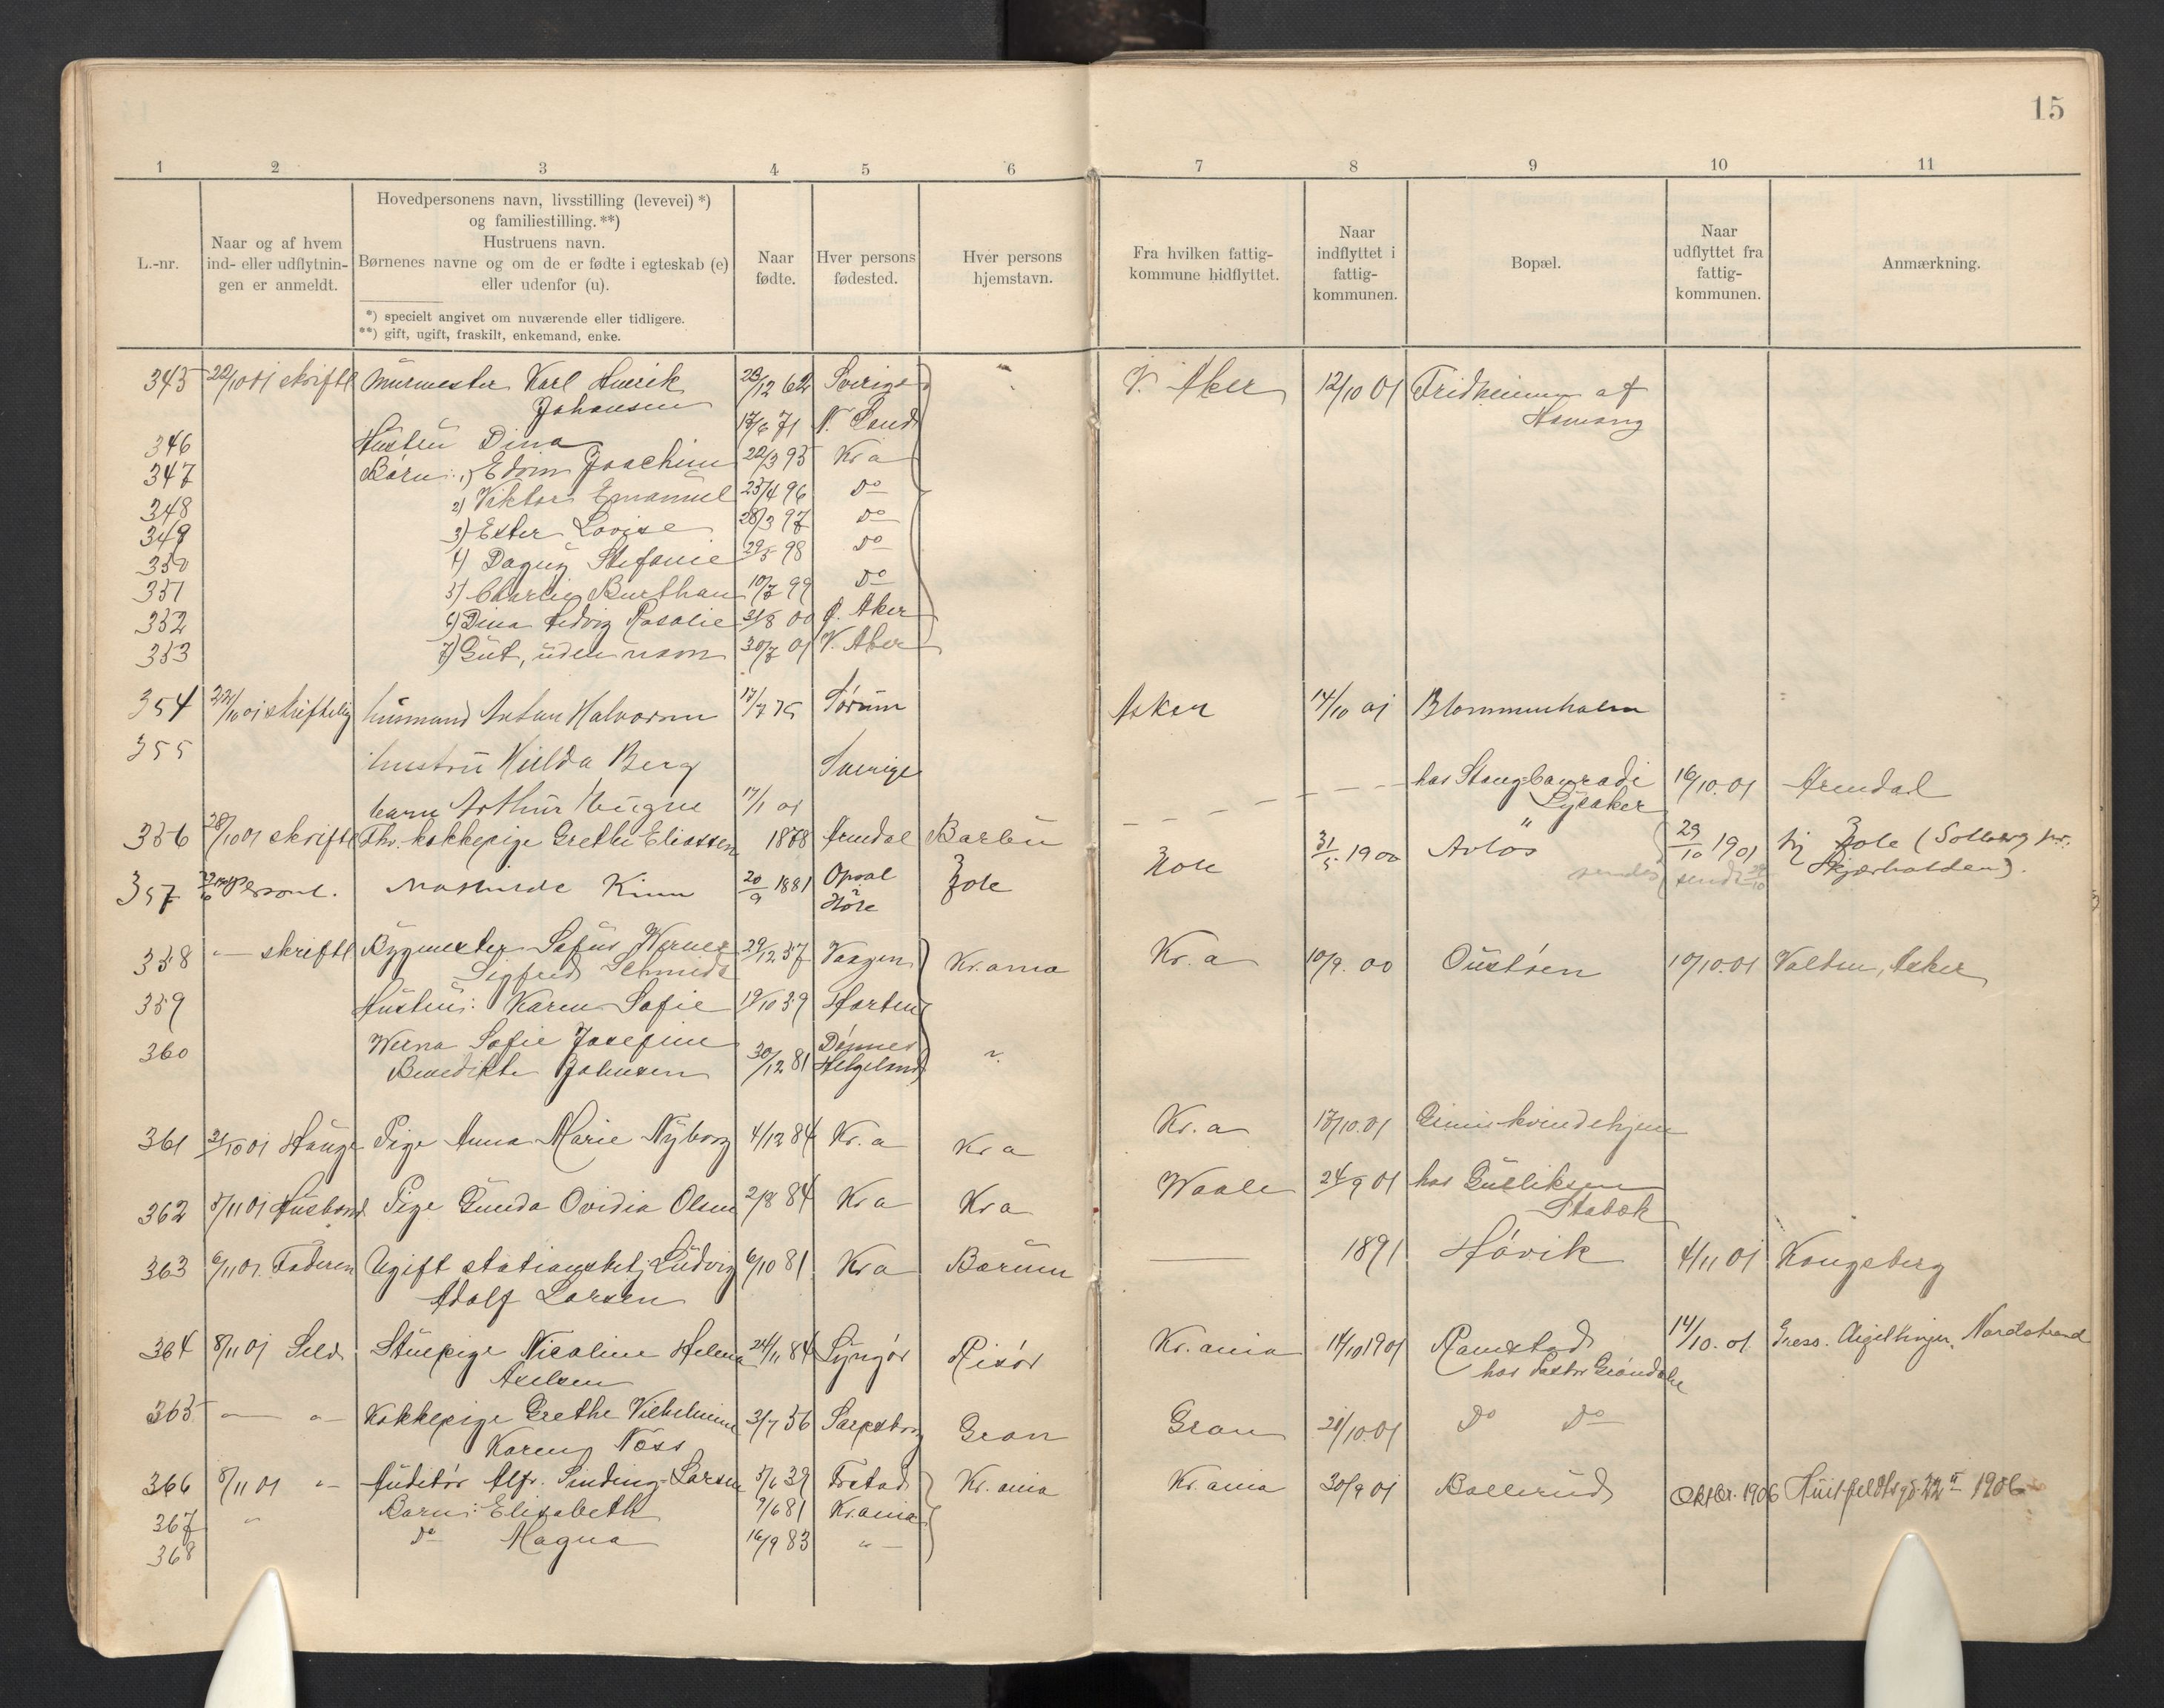 15
1 2 3 4 5 6 7 8 9 10 11
L.-nr.
Naar og af hvem
ind- eller udflytnin-
gen er anmeldt.
Hovedpersonens navn, livsstilling (levevei) *)
og familiestilling. **)
Hustruens navn.
Børnenes navne og om de er fødte i egteskab (e)
eller udenfor (u).
*) specielt angivet om nuværende eller tidligere.
**) gift, ugift, fraskilt, enkemand, enke.
Naar
fødte.
Hver persons
fødested.
Hver persons
hjemstavn.
Fra hvilken fattig-
kommune hidflyttet.
Naar
indflyttet i
fattig-
kommunen.
Bopæl.
Naar
udflyttet fra
fattig-
kommunen.
Anmærkning.
345 22/10 01 skriftl Murmester Karl Henrik 62 Sverige V. Aker 12/10 01 Fridheim af
Johansen Hamang
346 Hustru Dina 17/6 71 N. Land
347 Børn: 1) Edvin Joachim 22/3 95 Kr a
348 2) Viktor Emanuel 25/4 96 Do
349 3) Ester Lovise 28/3 97 Do
350 4) Dagny Stefanie 29/5 98 Do
351 5) Charlie 10/7 99 Do
352 6) Dina Hedvig Rosalie 31/8 00 Ø. Aker
353 7) Gut, uden navn 30/7 01 V. Aker
354 22/10 01 skriftelig husmand Anton Halvorsen 17/7 75 Sørum Asker 14/10 01 Blommenholm
355 hustru Hilda Berg Sverige
barn Arthur 17/1 01
hos
Lysaker 16/10.01 Arendal
356 28/10 01 skriftl Fhv. kokkepige Grethe Eliassen 1878 Arendal Barbu
357 Personl. Mathilde Kinn 20/9 1881 Opsal Hole Hole
Hole 31/5 1900 Avløs 29/10 1901 til Hole (Solberg pr.
Skjærholden).
358 "— skriftl Bygmester Sofus Werner 29/12 37 Vaagen Kr.ania Kr. a 10/9. 00 Oustøen 10/10.01 Valdun, Asker
Sigfred Schmidt
359 Hustru: Karen Sofie 19/10 39 Horten
360 Werna Sofie Josefine 30/12 81 Dønnes
Benedikte Johnsen Helgeland
361 31/10 01 Hauge Pige Anna Marie Nyborg 4/12 84 Kr. a Kr a Kr. a 17/10.01 Eines kvindehjem
362 5/11 01 Husbond Pige Gunda Ovidia Olsen 2/8 84 Kr a Kr a Waale 24/9 01 hos Gulliksen
Stabæk
363 6/11 01. Faderen Ugift stationsbetj. Ludvig 6/10 81 Kr a Bærum — 1891 Høvik 4/11 01 Kongsberg
Adolf Larsen
364 8/11 01 Selv Stuepige Nicoline Helena 24/11 84 Lyngør Risør Kr.ania 14/10 1901 Ramstad 14/10. 01. Nordstrand
Axelsen hos Pastor Grøndahl
365 " " Kokkepige Grethe Vilhelmine 3/7 56 Sarpsborg Gran Gran 21/10.01 Do Do
Karen Næss
366 8/11 01 " Auditør Alfr. Sinding-Larsen 5/6 39 Frstad Kr. ania Kr.ania 30/9 01 Ballerud Oktbr. 1906 Huitfeldtsgd. 22 II 1906
367 " Barn: Elisabeth 9/6 81 Kr.ania
368 Do Magna 16/9 83 " —